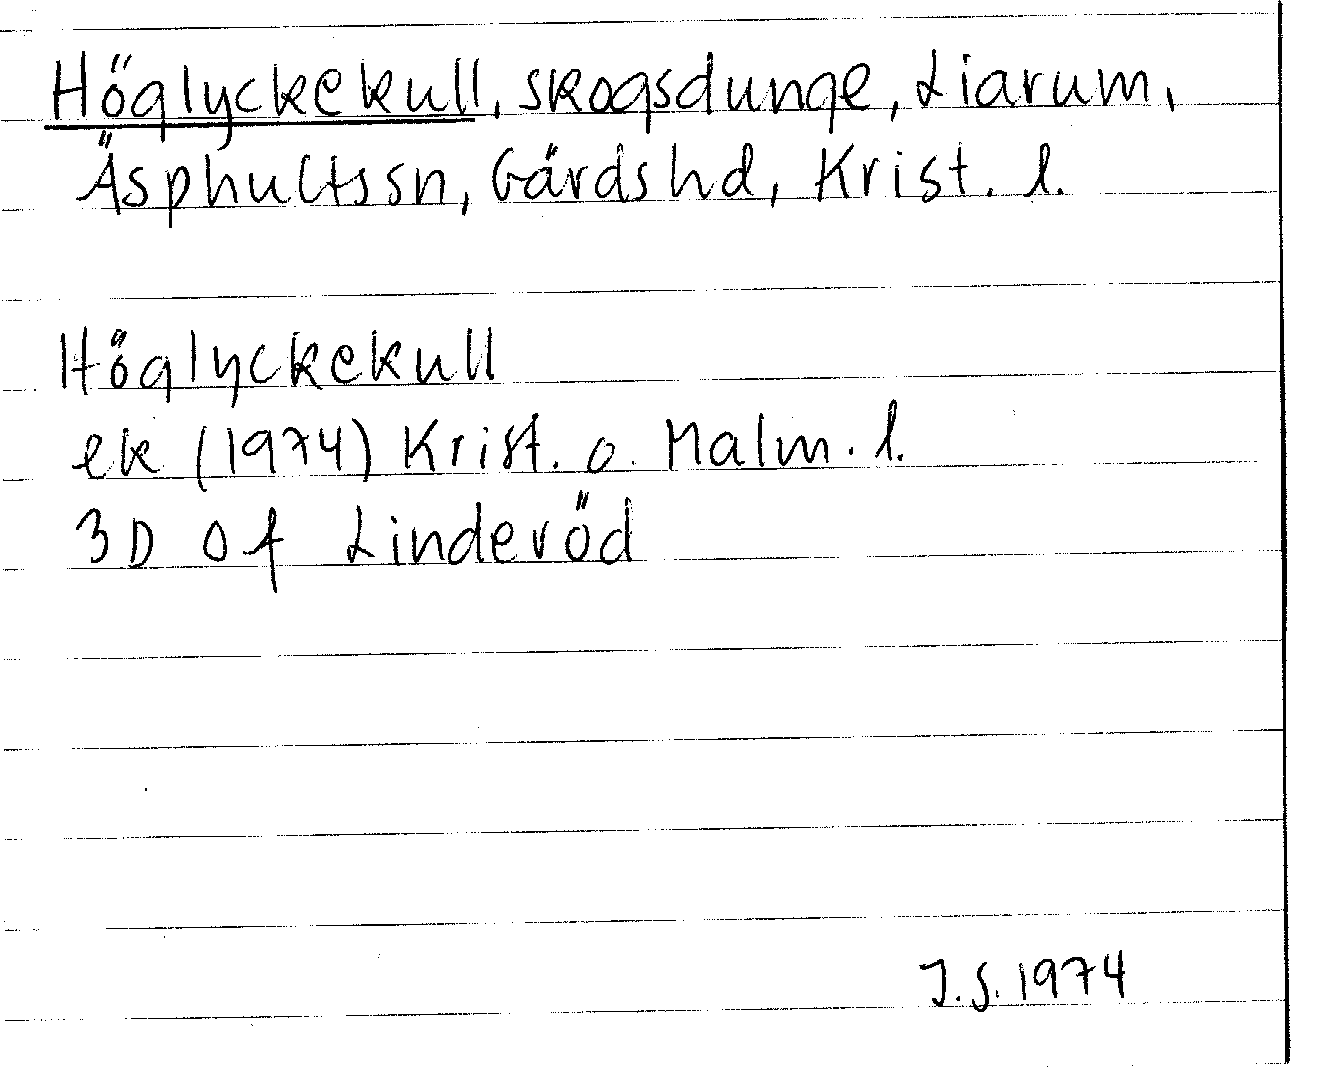 Höglyckekull, skogsdunge, Liarum,
Äsphultssn, Gärdshd, Krist. l.
Höglyckekull
ek (1974) Krist. o. Malm. l.
3D Of Linderöd
J.S. 1974